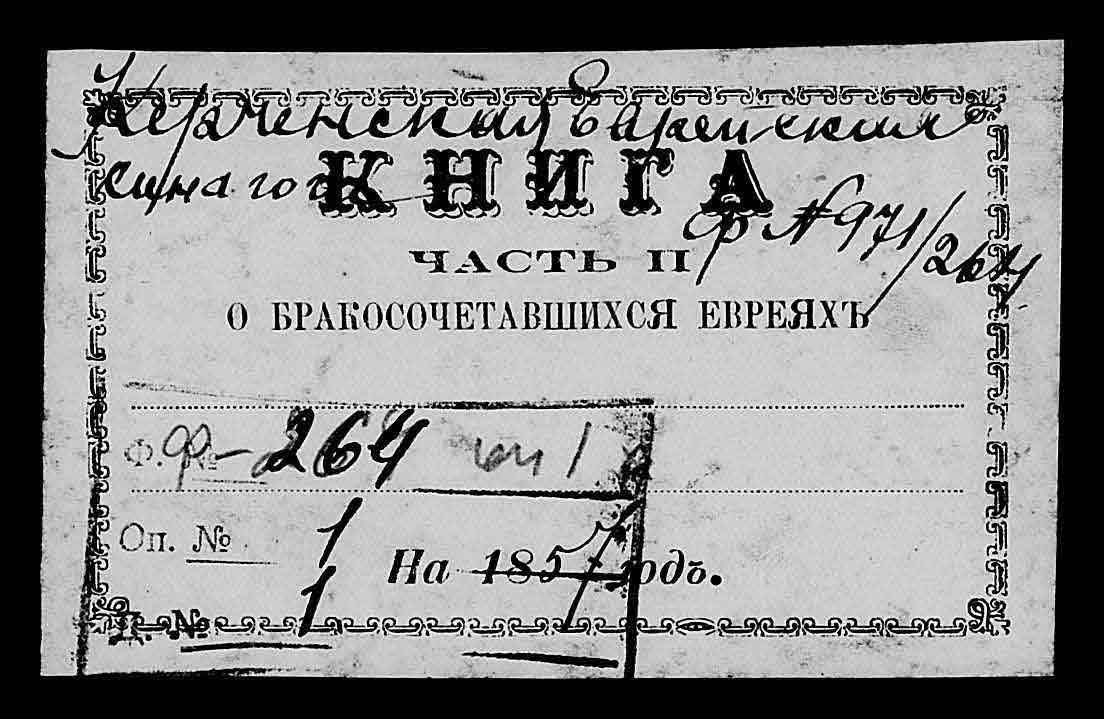 Керченская Еврейская
синагога
КНИГА
Ф № 971/264
ЧАСТЬ II
О БРАКОСОЧЕТАВШИХСЯ ЕВРЕЯХЪ
Ф. № Ф-264 оп 1
Оп. № 1
На 1857 годъ.
Д. № 1